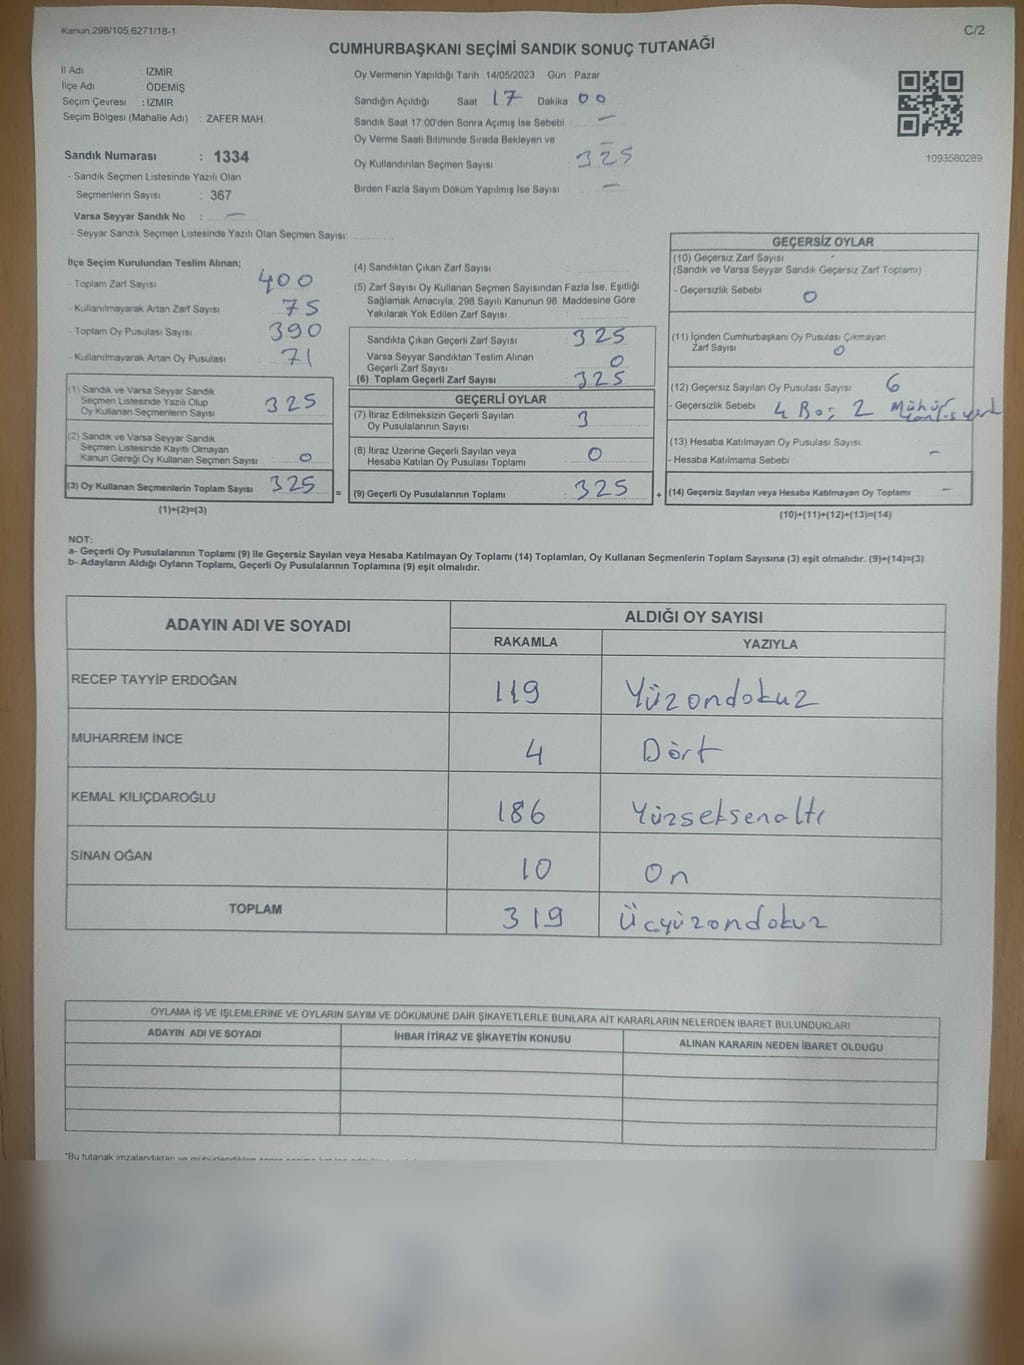 Kanun,298/105,6271/18-1
C/2
CUMHURBAŞKANI SEÇİMİ SANDIK SONUÇ TUTANAĞI
İl Adı : İZMİR
İlçe Adı : ÖDEMİŞ
Seçim Çevresi : İZMİR
Seçim Bölgesi (Mahalle Adı) : ZAFER MAH.
Sandık Numarası : 1334
- Sandık Seçmen Listesinde Yazılı Olan
Seçmenlerin Sayısı : 367
Varsa Seyyar Sandık No : -
- Seyyar Sandık Seçmen Listesinde Yazılı Olan Seçmen Sayısı:
Oy Vermenin Yapıldığı Tarih : 14/05/2023 Gün : Pazar
Sandığın Açıldığı Saat 17 Dakika 00
Sandık Saat 17:00'den Sonra Açımış İse Sebebi : -
Oy Verme Saati Bitiminde Sırada Bekleyen ve -
Oy Kullandırılan Seçmen Sayısı 325
Birden Fazla Sayım Döküm Yapılmış İse Sayısı : -
1093580289
İlçe Seçim Kurulundan Teslim Alınan;
- Toplam Zarf Sayısı 400
- Kullanılmayarak Artan Zarf Sayısı 75
- Toplam Oy Pusulası Sayısı 390
- Kullanılmayarak Artan Oy Pusulası 71
(1) Sandık ve Varsa Seyyar Sandık
Seçmen Listesinde Yazılı Olup
Oy Kullanan Seçmenlerin Sayısı 325
(2) Sandık ve Varsa Seyyar Sandık
Seçmen Listesinde Kayıtlı Olmayan
Kanun Gereği Oy Kullanan Seçmen Sayısı 0
(3) Oy Kullanan Seçmenlerin Toplam Sayısı 325
(1)+(2)=(3)
(4) Sandıktan Çıkan Zarf Sayısı
(5) Zarf Sayısı Oy Kullanan Seçmen Sayısından Fazla İse, Eşitliği
Sağlamak Amacıyla, 298 Sayılı Kanunun 98. Maddesine Göre
Yakılarak Yok Edilen Zarf Sayısı :
Sandıkta Çıkan Geçerli Zarf Sayısı : 325
Varsa Seyyar Sandıktan Teslim Alınan
Geçerli Zarf Sayısı : 0
(6) Toplam Geçerli Zarf Sayısı : 325
GEÇERLİ OYLAR
(7) İtiraz Edilmeksizin Geçerli Sayılan
Oy Pusulalarının Sayısı : 3
(8) İtiraz Üzerine Geçerli Sayılan veya
Hesaba Katılan Oy Pusulası Toplamı : 0
= (9) Geçerli Oy Pusulalarının Toplamı : 325 +
GEÇERSİZ OYLAR
(10) Geçersiz Zarf Sayısı
(Sandık ve Varsa Seyyar Sandık Geçersiz Zarf Toplamı)
- Geçersizlik Sebebi 0
(11) İçinden Cumhurbaşkanı Oy Pusulası Çıkmayan
Zarf Sayısı 0
(12) Geçersiz Sayılan Oy Pusulası Sayısı 6
- Geçersizlik Sebebi 4 Boş 2 Mühür
yanlış yerd
(13) Hesaba Katılmayan Oy Pusulası Sayısı
- Hesaba Katılmama Sebebi -
(14) Geçersiz Sayılan veya Hesaba Katılmayan Oy Toplamı -
(10)+(11)+(12)+(13)=(14)
NOT:
a- Geçerli Oy Pusulalarının Toplamı (9) ile Geçersiz Sayılan veya Hesaba Katılmayan Oy Toplamı (14) Toplamları, Oy Kullanan Seçmenlerin Toplam Sayısına (3) eşit olmalıdır. (9)+(14)=(3)
b- Adayların Aldığı Oyların Toplamı, Geçerli Oy Pusulalarının Toplamına (9) eşit olmalıdır.
ADAYIN ADI VE SOYADI ALDIĞI OY SAYISI
RAKAMLA YAZIYLA
RECEP TAYYİP ERDOĞAN 119 Yüzondokuz
MUHARREM İNCE 4 Dört
KEMAL KILIÇDAROĞLU 186 Yüzseksenaltı
SİNAN OĞAN 10 On
TOPLAM 319 Üçyüzondokuz
OYLAMA İŞ VE İŞLEMLERİNE VE OYLARIN SAYIM VE DÖKÜMÜNE DAİR ŞİKAYETLERLE BUNLARA AİT KARARLARIN NELERDEN İBARET BULUNDUKLARI
ADAYIN ADI VE SOYADI İHBAR İTİRAZ VE ŞİKAYETİN KONUSU ALINAN KARARIN NEDEN İBARET OLDUĞU
*Bu tutanak imzalandıktan ve mühürlendikten sonra